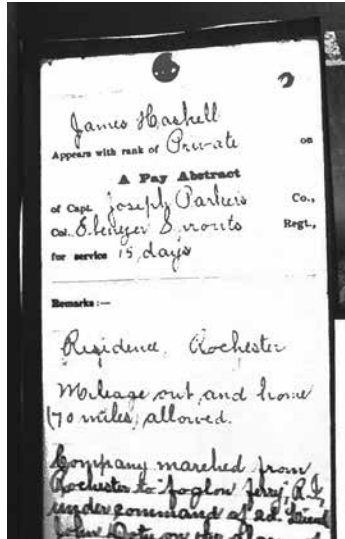 James Haskell
Appears with rank of Private on
A Pay Abstract
of Capt. Joseph Parkers Co.,
Col. Ebenezer Sprouts Regt.,
for service 15 days
Remarks:—
Residence, Rochester
Mileage out and home
(70 miles) allowed.
Company marched from
Rochester to foglon ferry, R.I,
under command of 2d. Lieut
John Doty on the alarm of